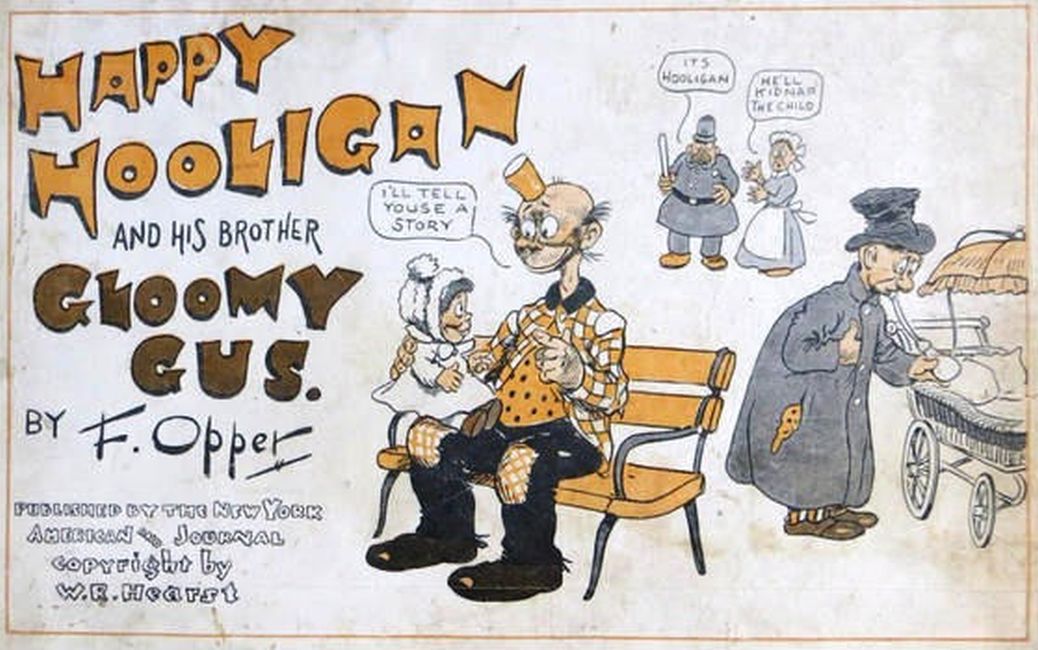 HAPPY
HOOLIGAN
AND HIS BROTHER
GLOOMY
GUS.
BY F. Opper
PUBLISHED BY THE NEW YORK
AMERICAN AND JOURNAL
COPYRIGHT by
W.R. Hearst
I'LL TELL
YOUSE A
STORY
ITS
HOOLIGAN
HE'LL
KIDNAP
THE CHILD